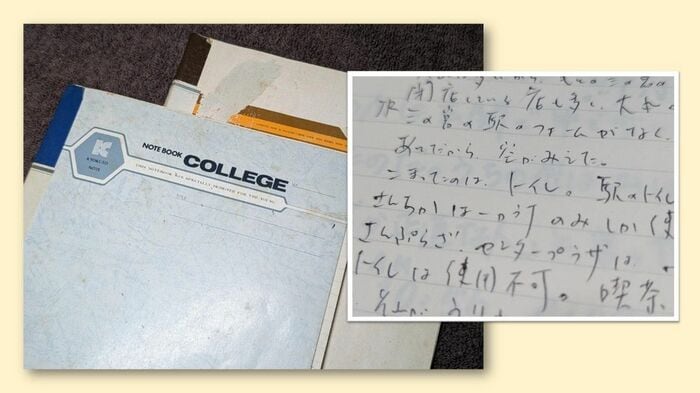 NOTE BOOK COLLEGE
THIS NOTEBOOK WAS SPECIALLY DESIGNED FOR THE YOUNG
K
KYOKUTO
NOTE
閉店している店も多く、
三の宮の駅のフォームがなく
あったから 空がみえた。
こまったのは、トイレ。駅のトイレ
さんちかは一か所のみしか使
さんぷらざ、センタープラザは、
トイレは使用不可。喫茶